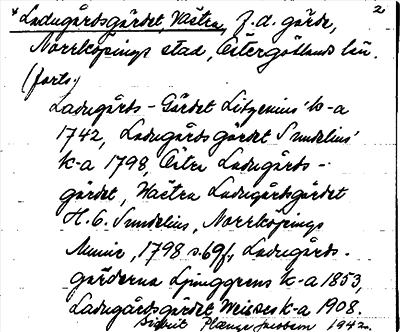 * Ladugårdsgärdet, Västra, f.d. gärde, 2.
Norrköpings stad, Östergötlands län.
(forts.)
Ladugårds-Gärdet Litzenius' k-a
1742, Ladugårdsgärdet Sundelius'
k-a 1798, Östra Ladugårds-
gärdet, Västra Ladugårdsgärdet
H. O. Sundelius, Norrköpings
Minne, 1798 s. 69f., Ladugårds-
gärderna Ljunggrens k-a 1853,
Ladugårdsgärdet Meisses k-a 1908.
Sigrit Planze Jacobsen 1942.